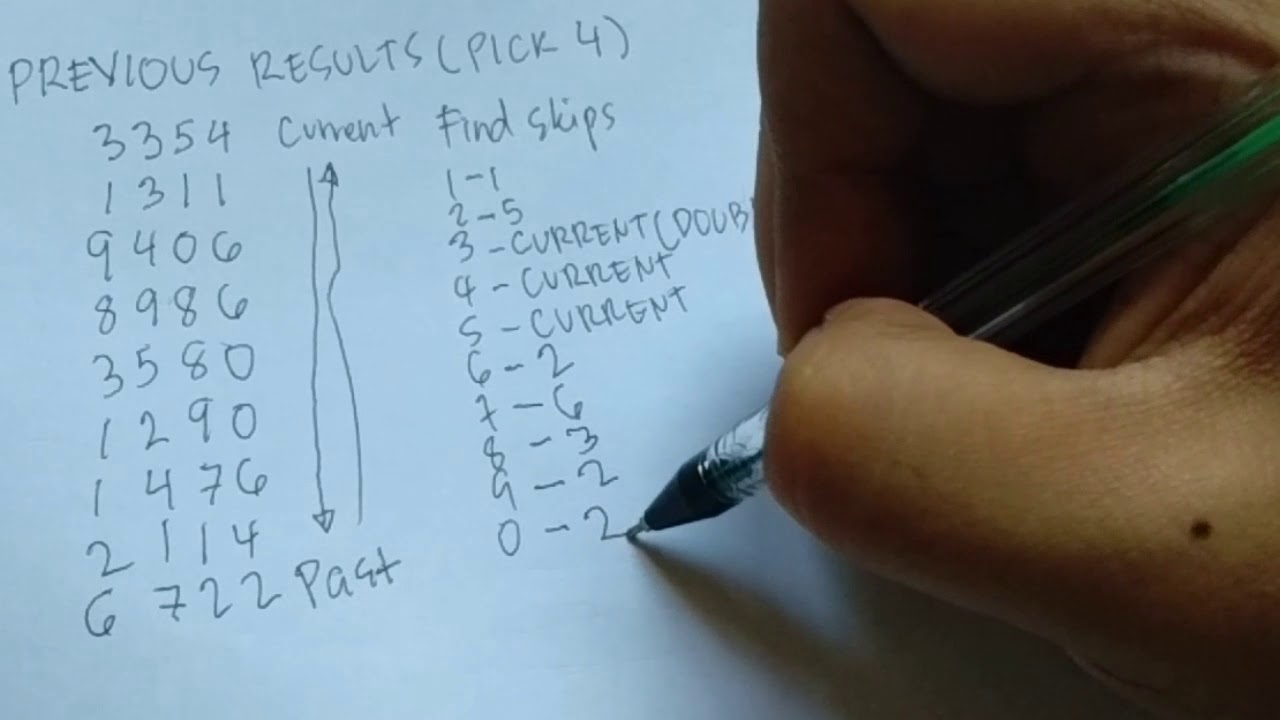 PREVIOUS RESULTS (PICK 4)
3354 Current Find skips
1311
9406
8986
3580
1290
1476
2114
6722 Past
1-1
2-5
3-CURRENT(DOUB
4-CURRENT
5-CURRENT
6-2
7-6
8-3
9-2
0-2